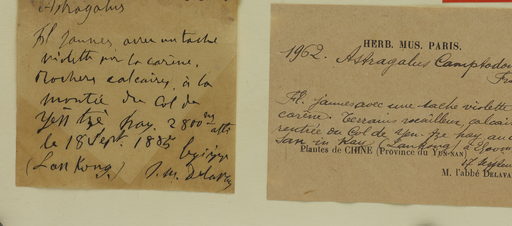 Astragalus
Fl. jaunes avec un tache
violette sur la carène.
Rochers calcaires, à la
montée du Col de
Yen tze hay. 2800 m alt.
le 18 Sept. 1885
(Lan Kong) J. M. Delavay
HERB. MUS. PARIS.
1962. Astragalus Camptodon
Fr
Fl. jaunes avec une tache violette
carène. Terrains rocailleux calcair
montée du Col de Yen. tze hay au
San in Kay (Lankong) à 2800m
Plantes de CHINE (Province du YUN-NAN)
17 septem
M. l'abbé DELAVA